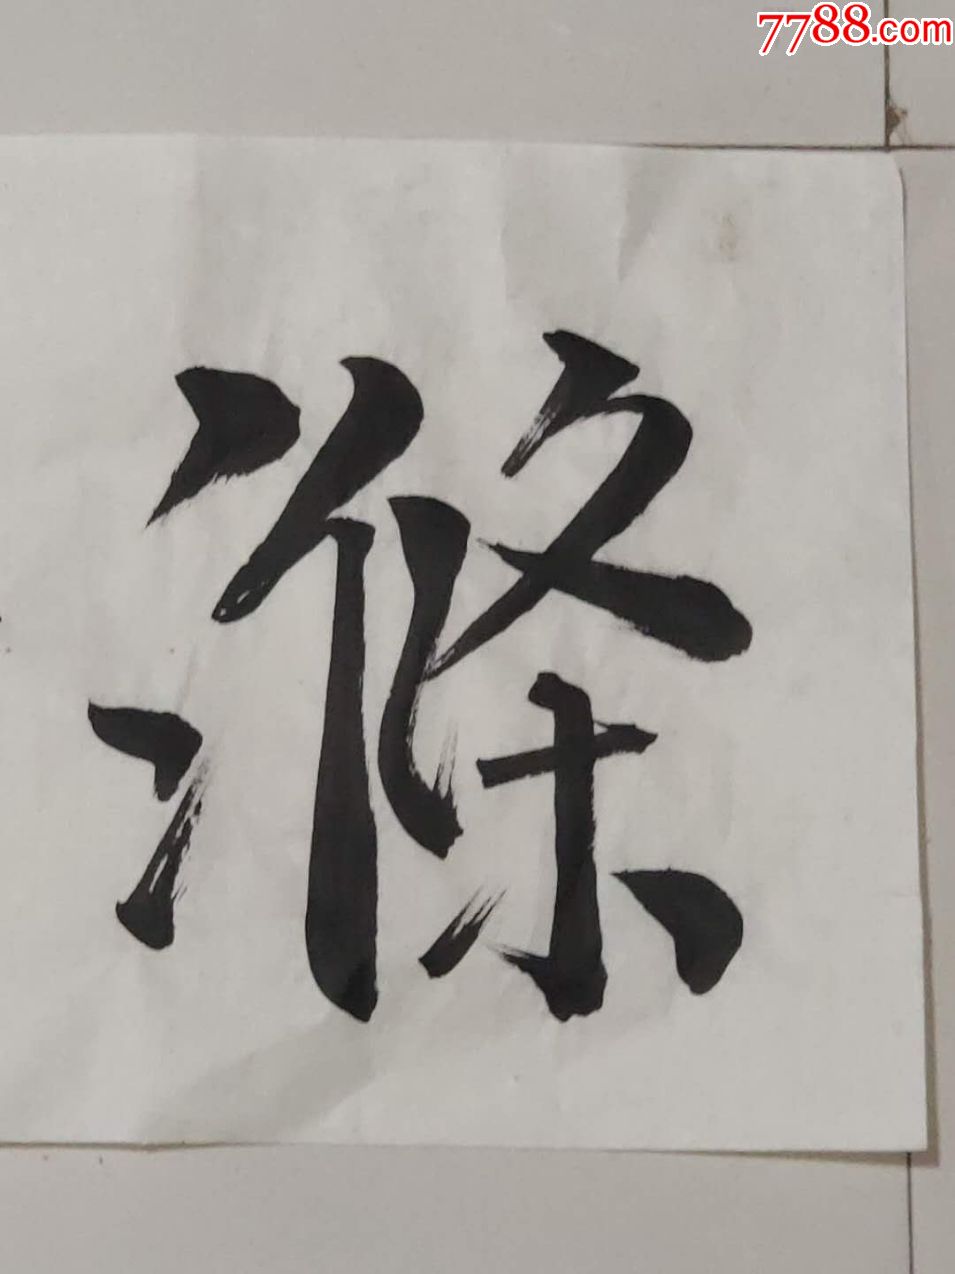 7788.com
滌